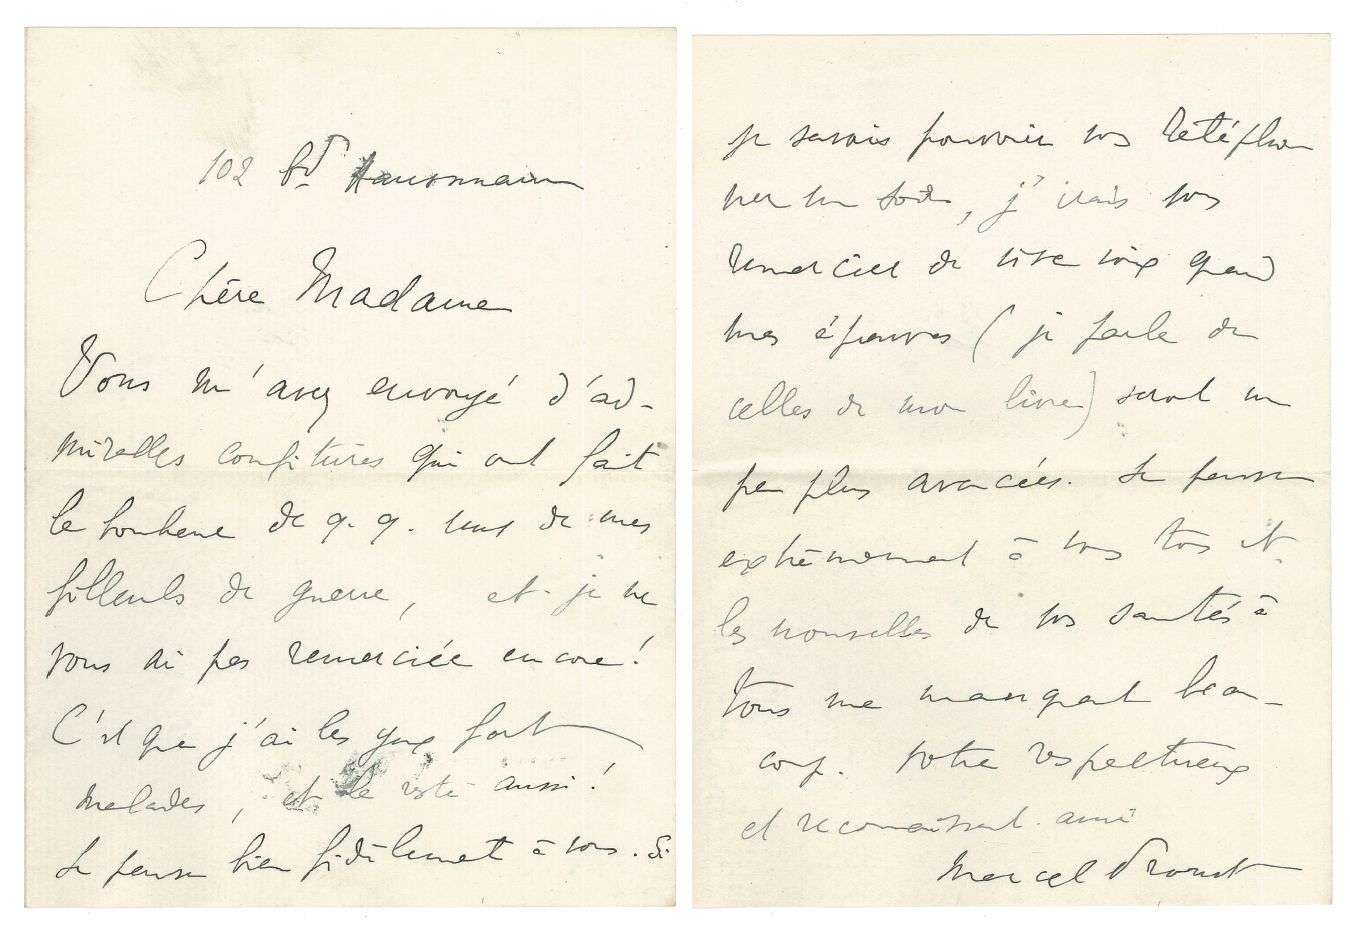 102 bd Haussmann
Chère Madame
Vous m'avez envoyé d'ad-
mirables confitures qui ont fait
le bonheur de q.q. uns de mes
filleuls de guerre, et je ne
vous ai pas remerciée encore!
C'est que j'ai les yeux fort
malades, et le reste aussi!
Je pense bien fidèlement à vous. Si
je savais pouvoir vous télépho
ner un soir, j'irais vous
remercier de vive voix quand
mes épreuves (je parle de
celles de mon livre) seront un
peu plus avancées. Je pense
extrêmement à vous tous et
les nouvelles de vos santés à
tous me manquent beau-
coup. Votre respectueux
et reconnaissant ami
Marcel Proust